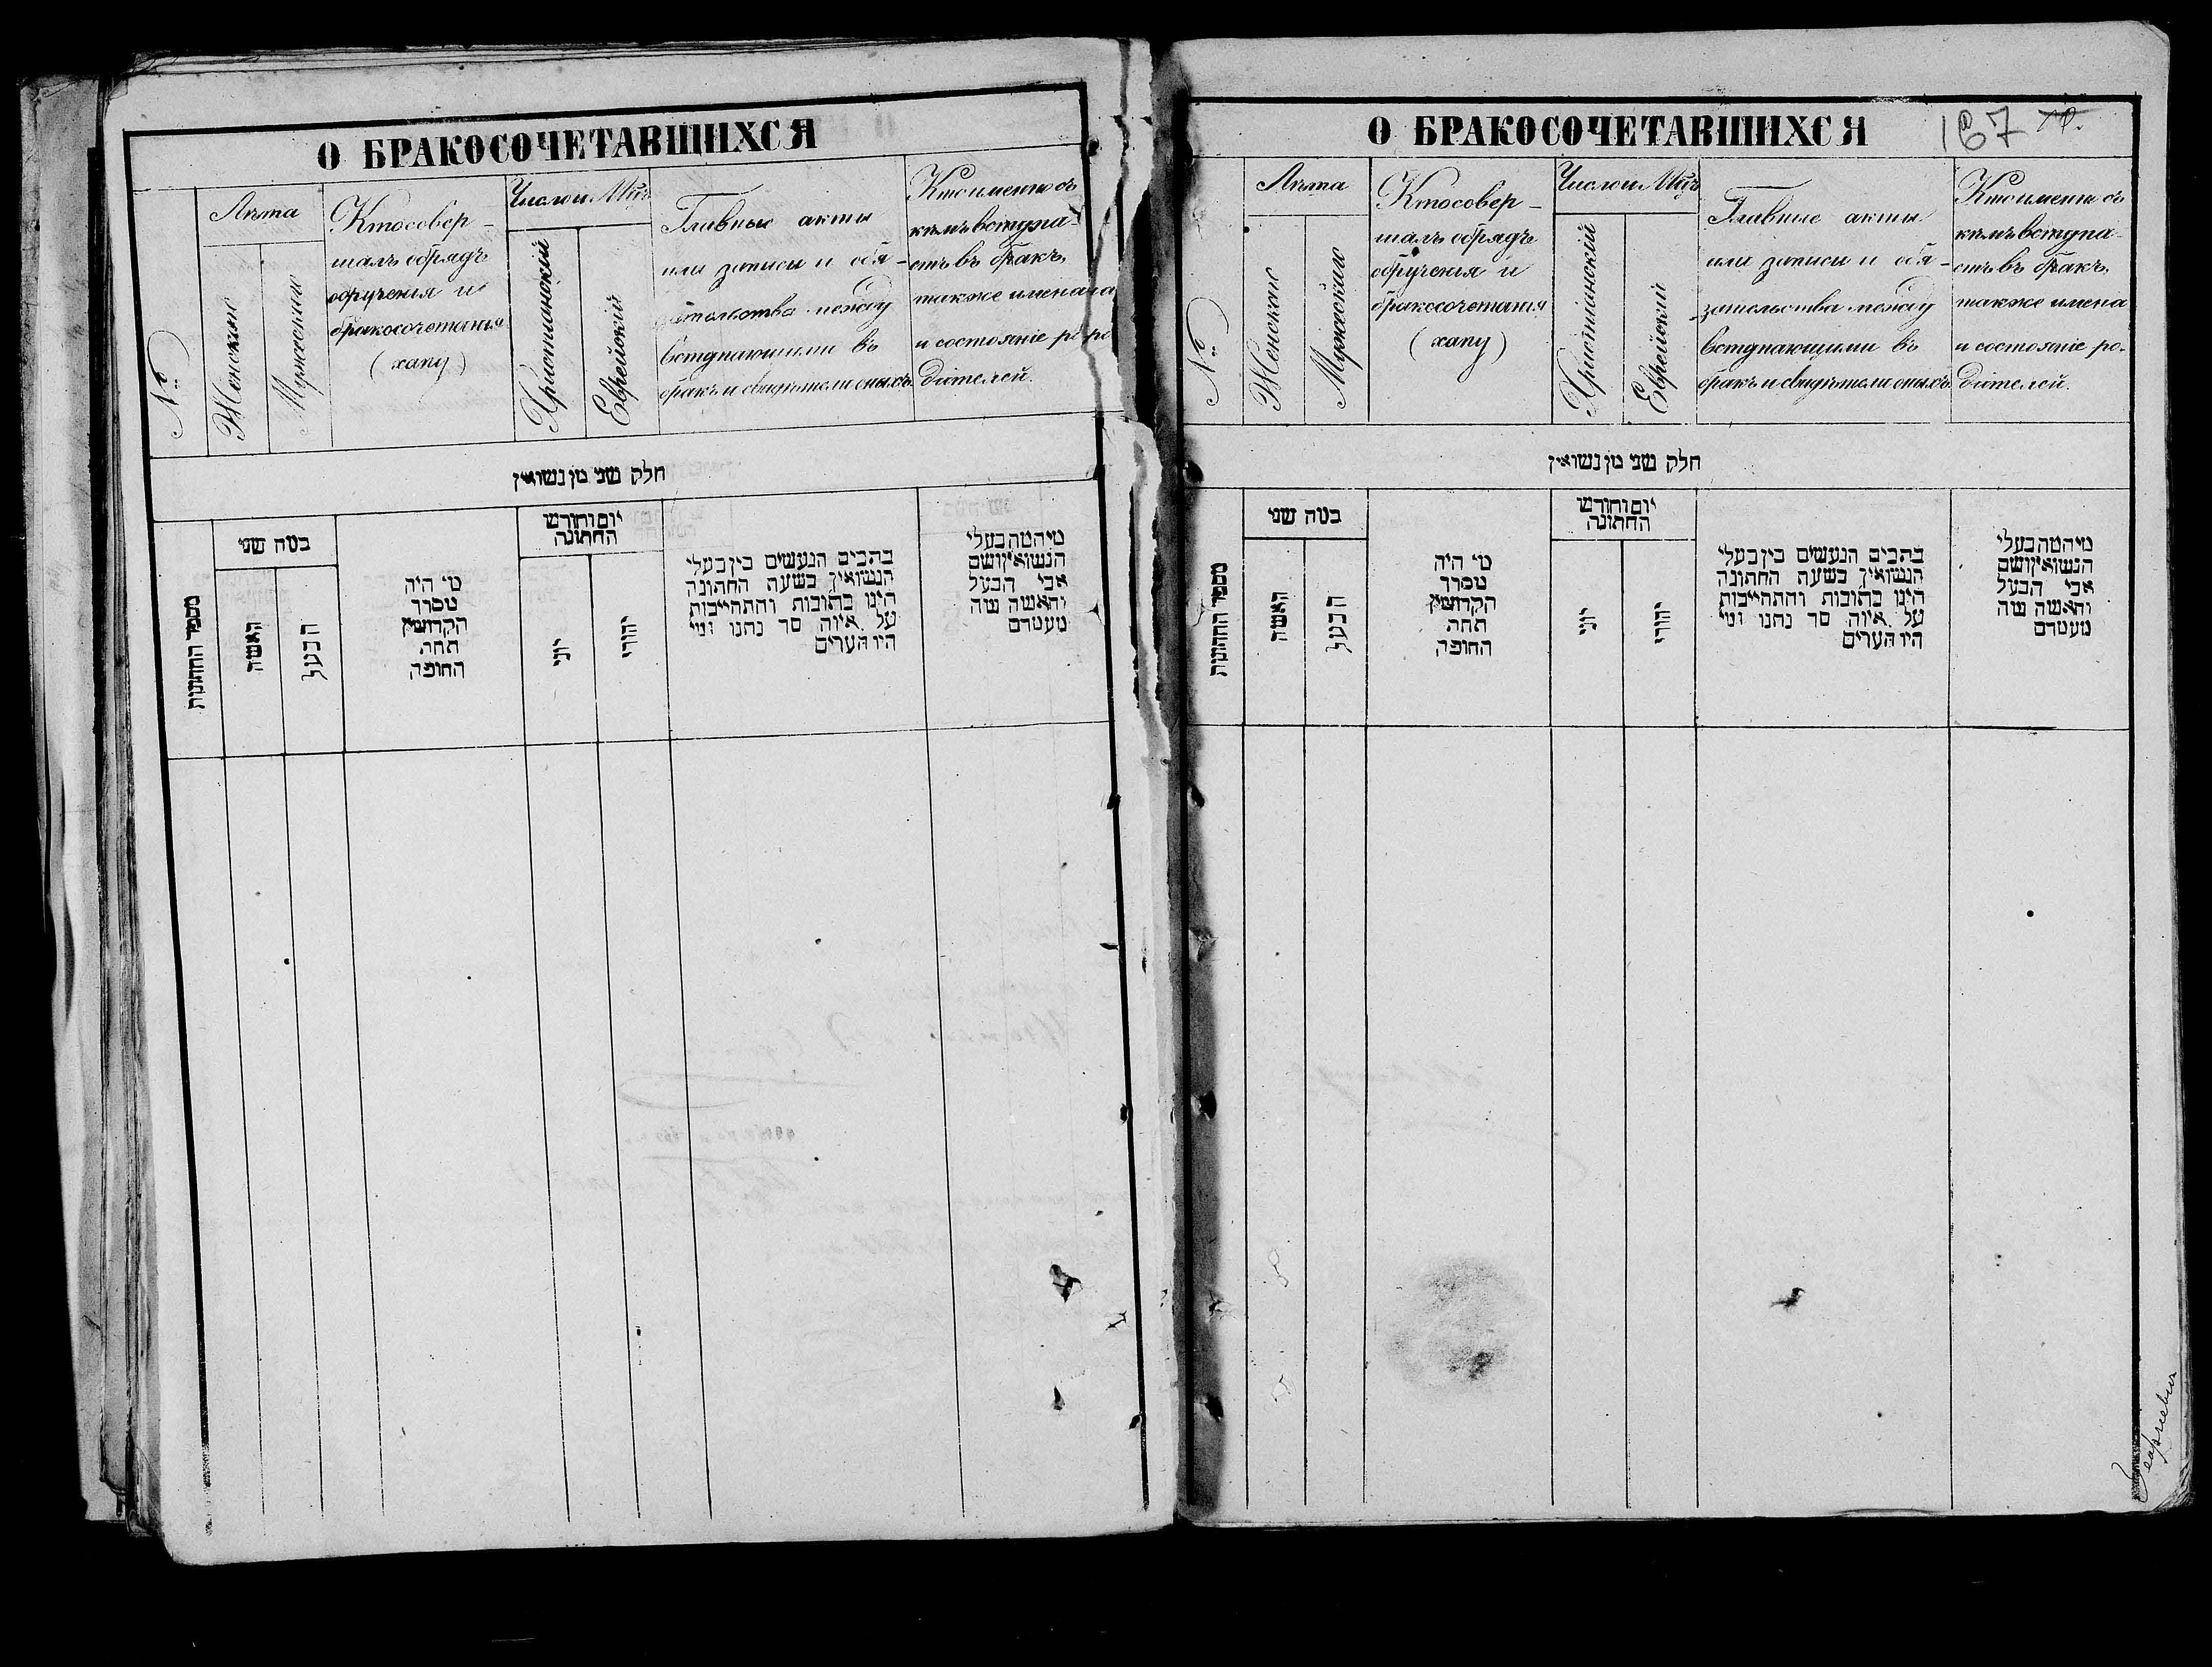 О БРАКОСОЧЕТАВШИХСЯ
№
Лѣта
Женскаго
Мужескаго
Кто совер-
шалъ обрядъ
обрученія и
бракосочетанія
(хапу)
Число и Мѣц
Христіанскій
Еврейскій
Главные акты
или записи и обя-
зательства между
вступающими въ
бракъ и свидѣтели оныхъ
Кто именно съ
кѣмъ вступа-
етъ въ бракъ,
также имена
и состояніе ро-
дителей.
חלק שני מן נשואין
מספר החתונות
במה שני
האשה
הבעל
מי היה
מסדר
הקדושין
תחת
החופה
יום וחודש
החתונה
יוני
יהודי
כתבים הנעשים בין בעלי
הנשואין בשעת החתונה
היינו כתובות והתחייבות
על איזה סך נתנו ומי
היו העדים
מי המה בעלי
הנשואין ושם
אבי הבעל
והאשה ומה
מעמדם
О БРАКОСОЧЕТАВШИХСЯ
167
№
Лѣта
Женскаго
Мужескаго
Кто совер-
шалъ обрядъ
обрученія и
бракосочетанія
(хапу)
Число и Мѣц
Христіанскій
Еврейскій
Главные акты
или записи и обя-
зательства между
вступающими въ
бракъ и свидѣтели оныхъ
Кто именно съ
кѣмъ вступа-
етъ въ бракъ,
также имена
и состояніе ро-
дителей.
חלק שני מן נשואין
מספר החתונות
במה שני
האשה
הבעל
מי היה
מסדר
הקדושין
תחת
החופה
יום וחודש
החתונה
יוני
יהודי
כתבים הנעשים בין בעלי
הנשואין בשעת החתונה
היינו כתובות והתחייבות
על איזה סך נתנו ומי
היו העדים
מי המה בעלי
הנשואין ושם
אבי הבעל
והאשה ומה
מעמדם